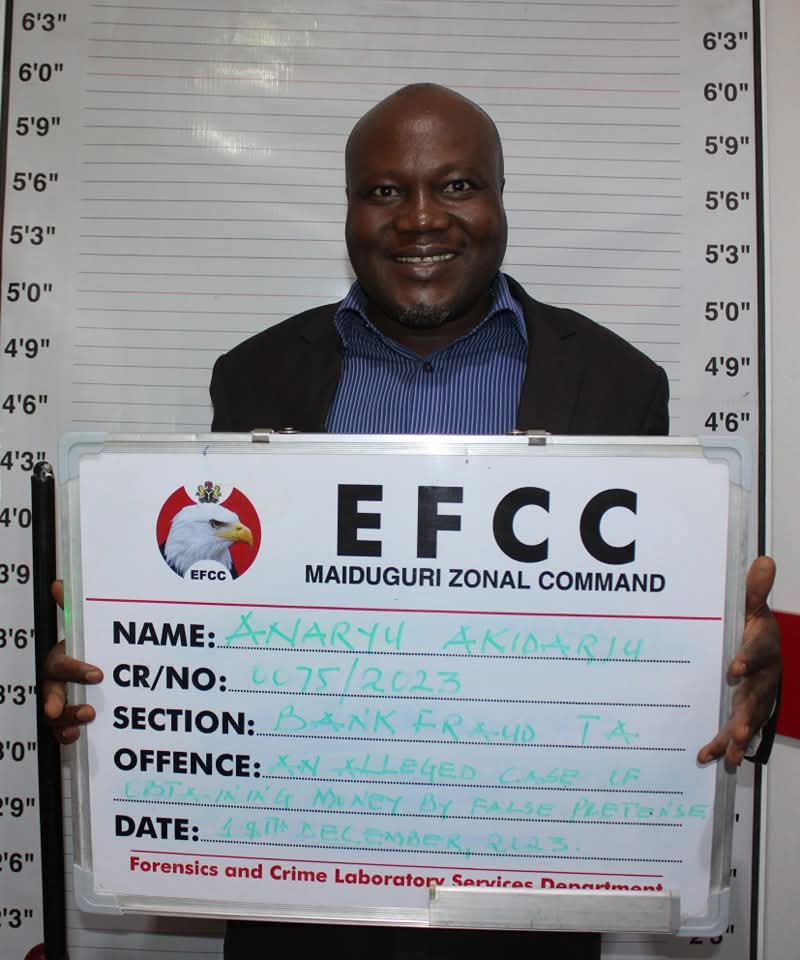 6'3"
6'0"
5'9"
5'6"
5'3"
5'0"
4'9"
4'6"
4'3"
4'0
3'9
3'6'
3'3"
3'0"
2'9"
2'6"
2'3"
6'3"
6'0"
5'9"
5'6"
5'3"
5'0"
4'9"
4'6"
EFCC
EFCC
MAIDUGURI ZONAL COMMAND
NAME: ANARYU AKIDARJU
CR/NO: 0075/2023
SECTION: BANK FRAUD TA
OFFENCE: AN ALLEGED CASE OF
OBTAINING MONEY BY FALSE PRETENSE
DATE: DECEMBER, 2023.
Forensics and Crime Laboratory Services Department